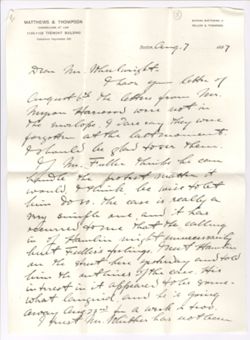 MATTHEWS & THOMPSON
TREMONT BUILDING
Boston, Aug. 7 1907
Dear Mr. Wheelwright:
I have your letter of
August 6th. The letters from Mr.
Myron Harmon were not in
the envelope. I dare say they were
forgotten at the last moment.
I should be glad to see them.
If Mr. Fuller thinks he can
handle the protest matter it
would, I think, be wise to let
him do so. The case is really a
very simple one and it has
occurred to me that the calling
in of Hamlin might unnecessarily
hurt Fuller's feelings. I met Hamlin
on the street here yesterday and told
him the outlines of the case. His
interest in it appeared to be some-
what languid and he is going
away Aug for a week or two.
I trust Mr. has not been